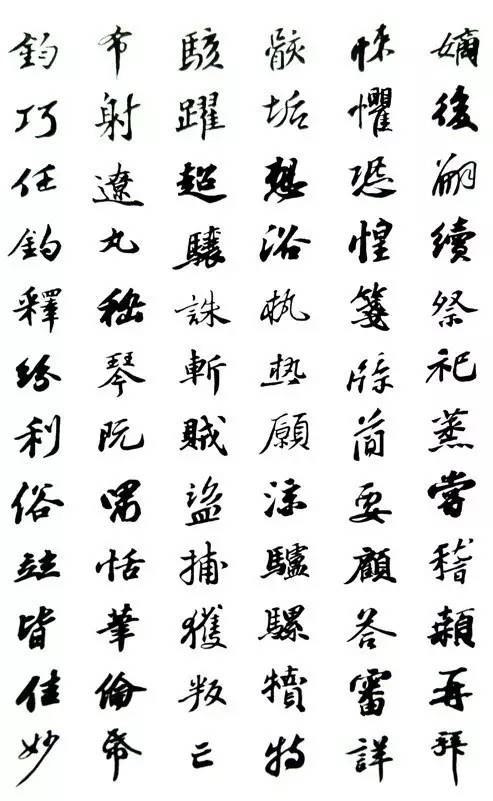 嫡後嗣續祭祀蒸嘗稽顙再拜
悚懼恐惶箋牒簡要顧答審詳
骸垢想浴執熱願涼驢騾犢特
駭躍超驤誅斬賊盜捕獲叛亡
布射遼丸嵇琴阮恬筆倫帋
鈞巧任釣釋紛利俗竝皆佳妙